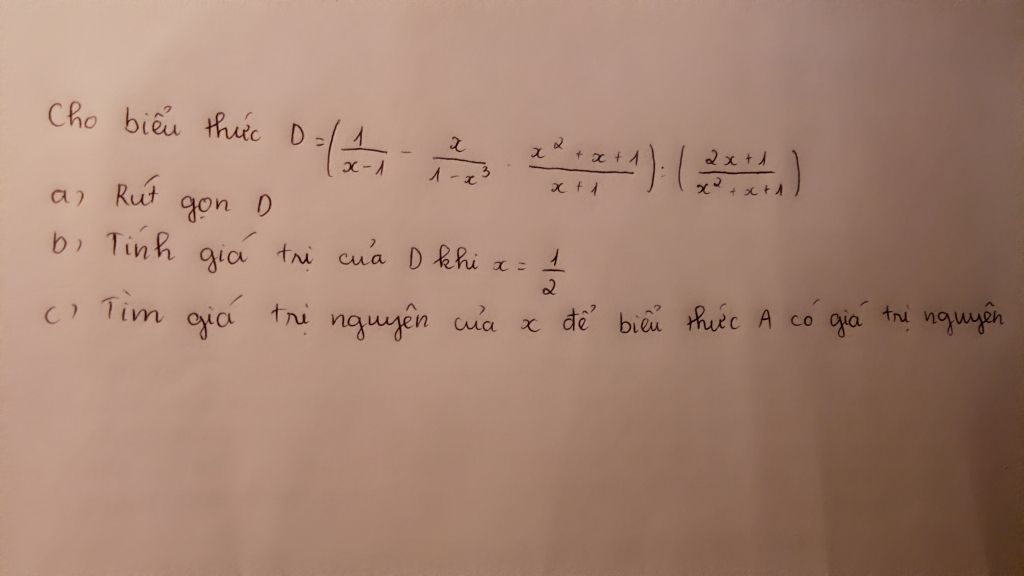 Cho biểu thức D = (1/(x-1) - x/(1-x³) · (x²+x+1)/(x+1)) : ((2x+1)/(x²+x+1))
a) Rút gọn D
b) Tính giá trị của D khi x = 1/2
c) Tìm giá trị nguyên của x để biểu thức A có giá trị nguyên